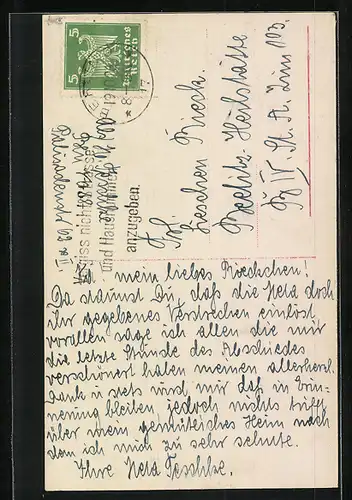 5
5
Deutsches
Reich
Vergiss nicht Strasse
und Hausnummer
anzugeben.
Frl.
Lieschen Rieck.
Beelitz-Heilstätte
Zim 103.
mein liebes Rieckchen!
Da staunst Du, daß die Meta doch
ihr gegebenes Versprechen einlöst,
vorallen sage ich allen die mir
die letzte Stunde des Abschiedes
verschönert haben meinen allerherzl.
Dank u stets wird mir daß in Erin-
nerung bleiben, jedoch nichts trifft
über mein gemütliches Heim nach
dem ich mich zu sehr sehnte.
Ihre Meta Teschke.